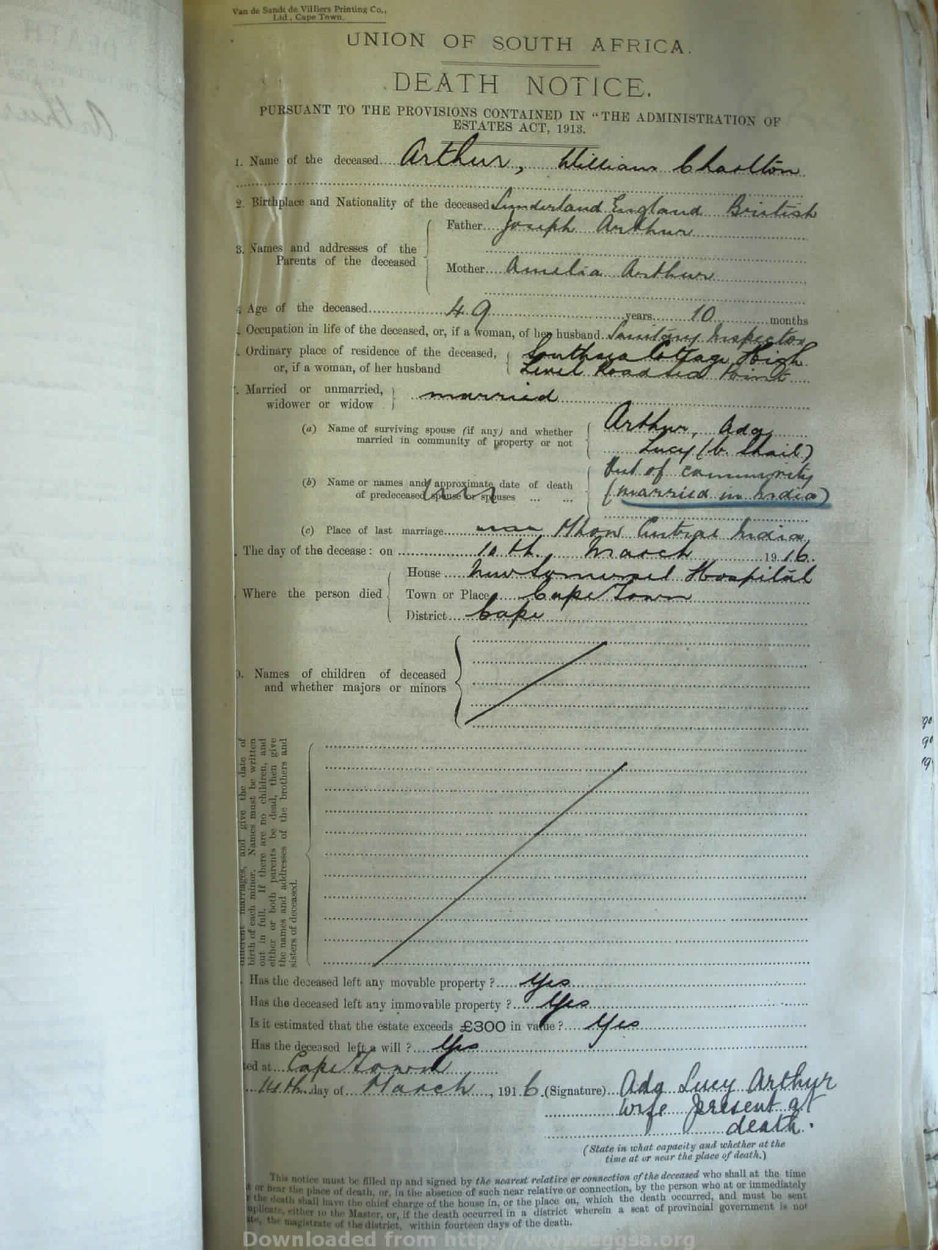 Van de Sandt de Villiers Printing Co.,
Ltd., Cape Town.
UNION OF SOUTH AFRICA.
DEATH NOTICE.
PURSUANT TO THE PROVISIONS CONTAINED IN "THE ADMINISTRATION OF
ESTATES ACT, 1913.
1. Name of the deceased Arthur, William Charlton
2. Birthplace and Nationality of the deceased Sunderland England British
Father Joseph Arthur
3. Names and addresses of the
Parents of the deceased
Mother Amelia Arthur
Age of the deceased 49 years 10 months
Occupation in life of the deceased, or, if a woman, of her husband Sanitary Inspector
Ordinary place of residence of the deceased,
or, if a woman, of her husband
Southsea Cottage High
Level Road Sea Point
Married or unmarried,
widower or widow married
(a) Name of surviving spouse (if any) and whether
married in community of property or not
Arthur, Ada
Lucy (b. Shail)
(b) Name or names and approximate date of death
of predeceased spouse or spouses
Out of community
(married in India)
(c) Place of last marriage Mhow Central India
The day of the decease: on 10th March 1916.
House New Somerset Hospital
Where the person died
Town or Place Cape Town
District Cape
Names of children of deceased
and whether majors or minors
different marriages, and give the date of
birth of each minor. Names must be written
out in full. If there are no children, and
either or both parents be dead, then give
the names and addresses of the brothers and
sisters of deceased.
Has the deceased left any movable property? Yes
Has the deceased left any immovable property? Yes
Is it estimated that the estate exceeds £300 in value? Yes
Has the deceased left a will? Yes
ted at Cape Town
14th day of March, 1916. (Signature) Ada Lucy Arthur
wife present at
death.
(State in what capacity and whether at the
time at or near the place of death.)
This notice must be filled up and signed by the nearest relative or connection of the deceased who shall at the time
at or near the place of death, or, in the absence of such near relative or connection, by the person who at or immediately
the death shall have the chief charge of the house in, or the place on, which the death occurred, and must be sent
uplicate, either to the Master, or, if the death occurred in a district wherein a seat of provincial government is not
ate, the magistrate of the district, within fourteen days of the death.
Downloaded from http://www.eggsa.org